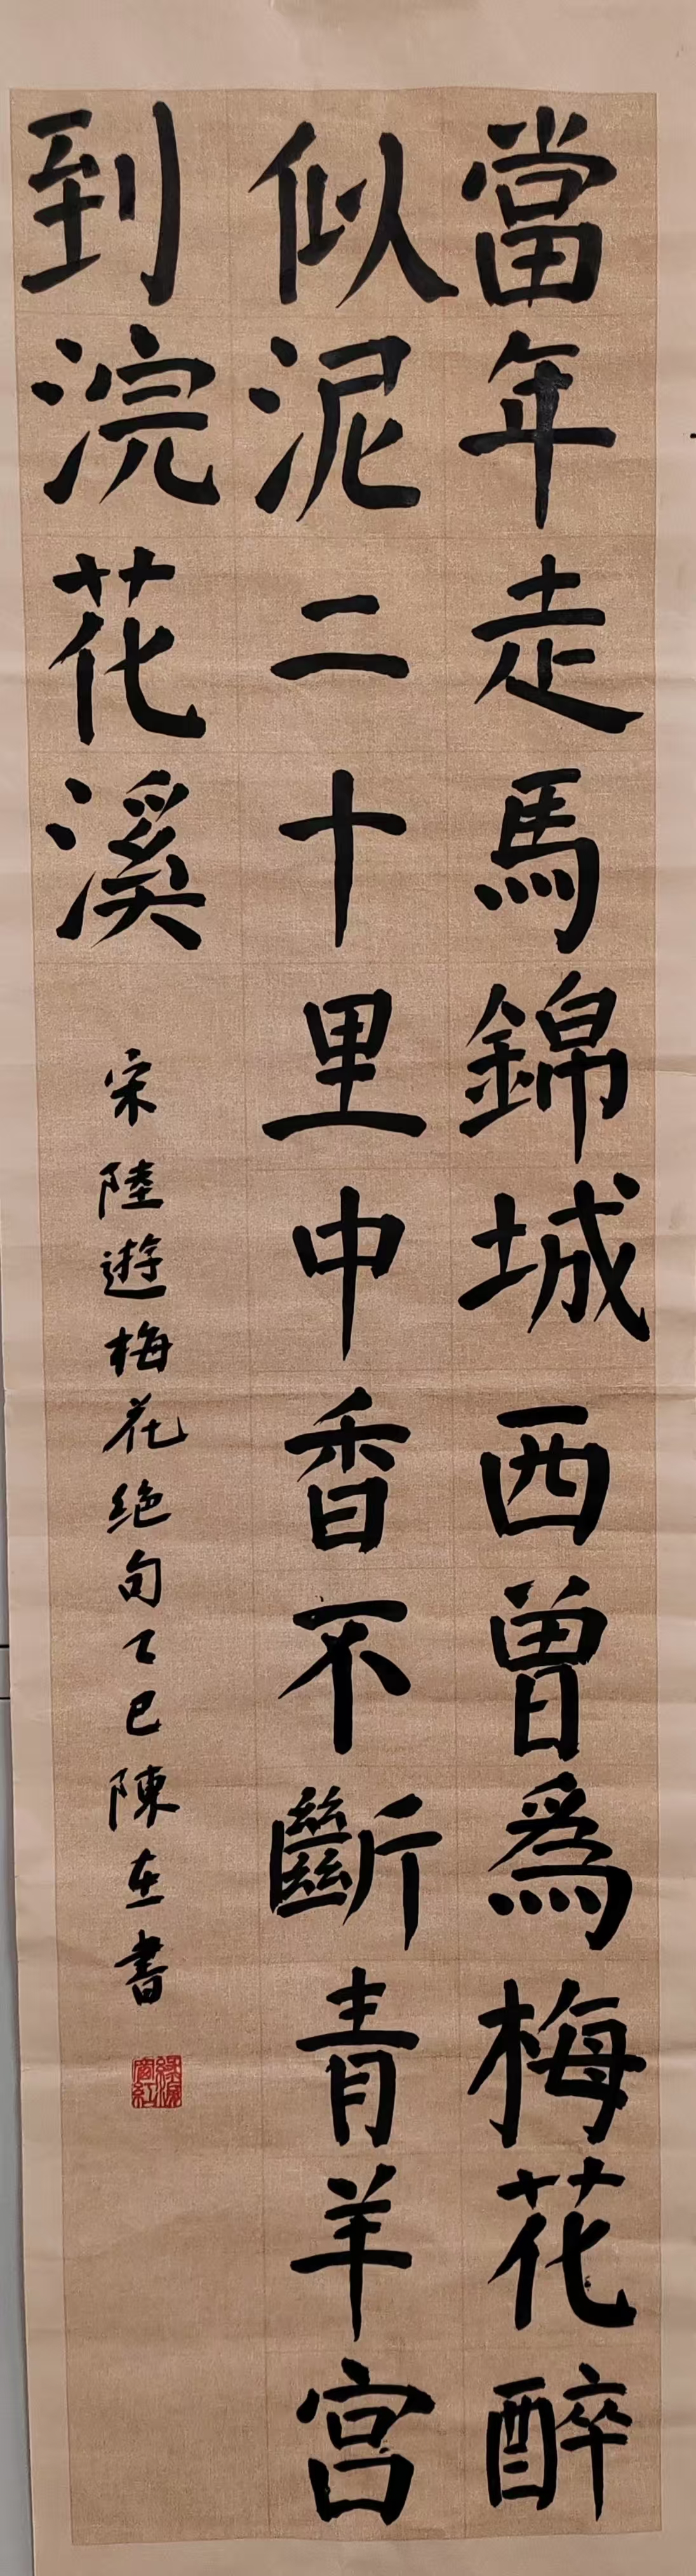 當年走馬錦城西曾爲梅花醉
似泥二十里中香不斷青羊宫
到浣花溪
宋陸遊梅花绝句乙巳陳書